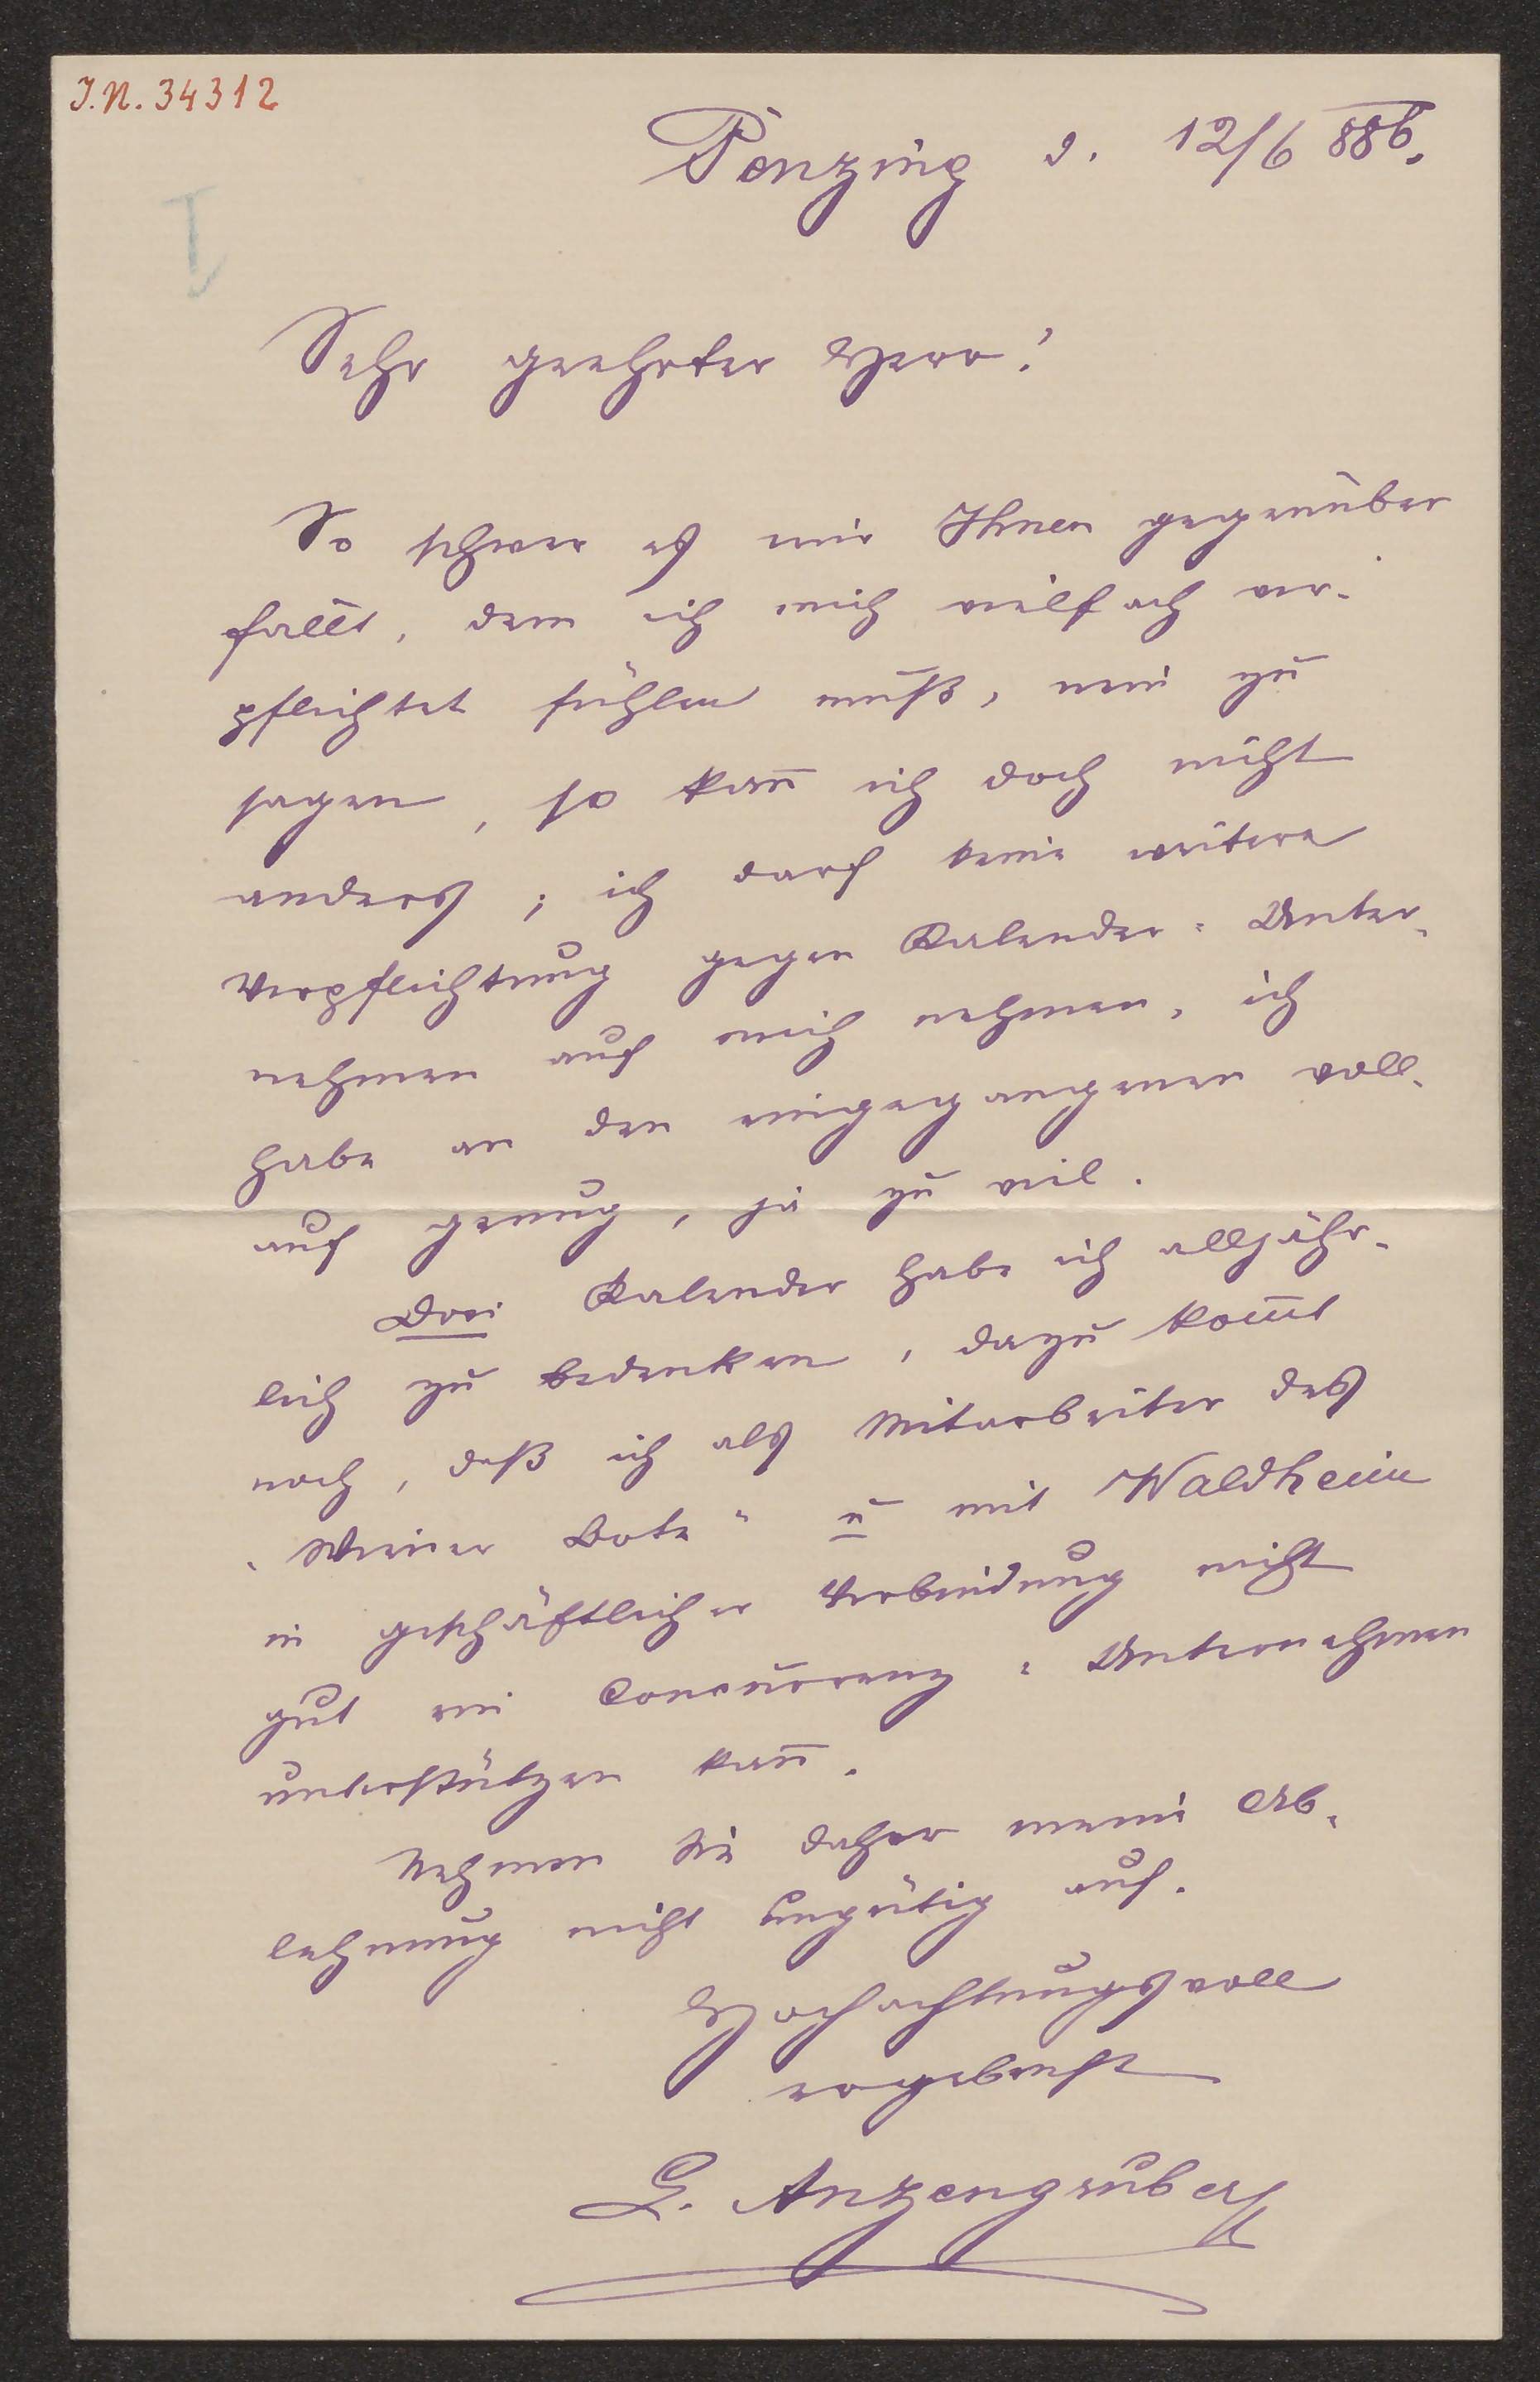 J.N. 34312
Penzing d. 12/6 886.
I
Sehr geehrter Herr!
So schwer es mir Ihnen gegenüber
fällt, dem ich mich vielfach ver-
pflichtet fühlen muß, nein zu
sagen, so kan̅ ich doch nicht
anders; ich darf keine weitere
Verpflichtung gegen Kalender-Unter-
nehmen auf mich nehmen, ich
habe an den eingegangenen voll-
auf genug, ja zu viel.
Drei Kalender habe ich alljähr-
lich zu bedenken, dazu kom̅t
noch, daß ich als Mitarbeiter des
„Wiener Bote“ u mit Waldheim
in geschäftlicher Verbindung nicht
gut ein Concurrenz-Unternehmen
unterstützen kan̅.
Nehmen Sie daher meine Ab-
lehnung nicht ungütig auf.
Hochachtungsvoll
ergebenst
L. Anzengruber